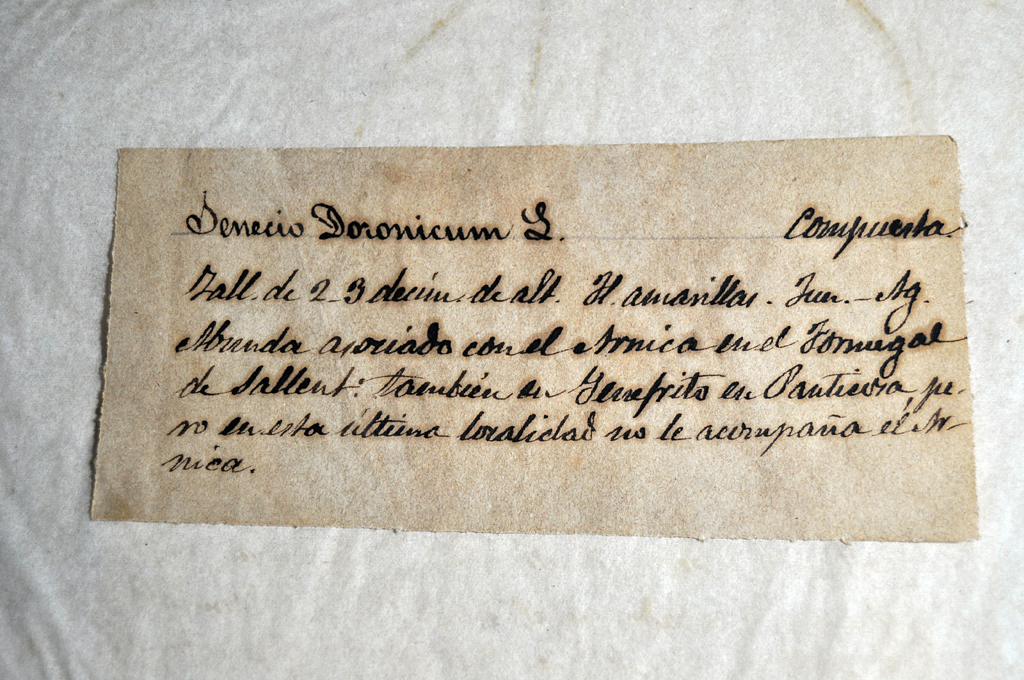 Senecio Doronicum L. Compuesta.
Tall. de 2-3 decím. de alt. Fl. amarillas. Jun.-Ag.
Abunda asociado con el Arnica en el Formigal
de Sallent: también en Yenefrito en Panticosa, pe-
ro en esta última localidad no le acompaña el Ar-
nica.